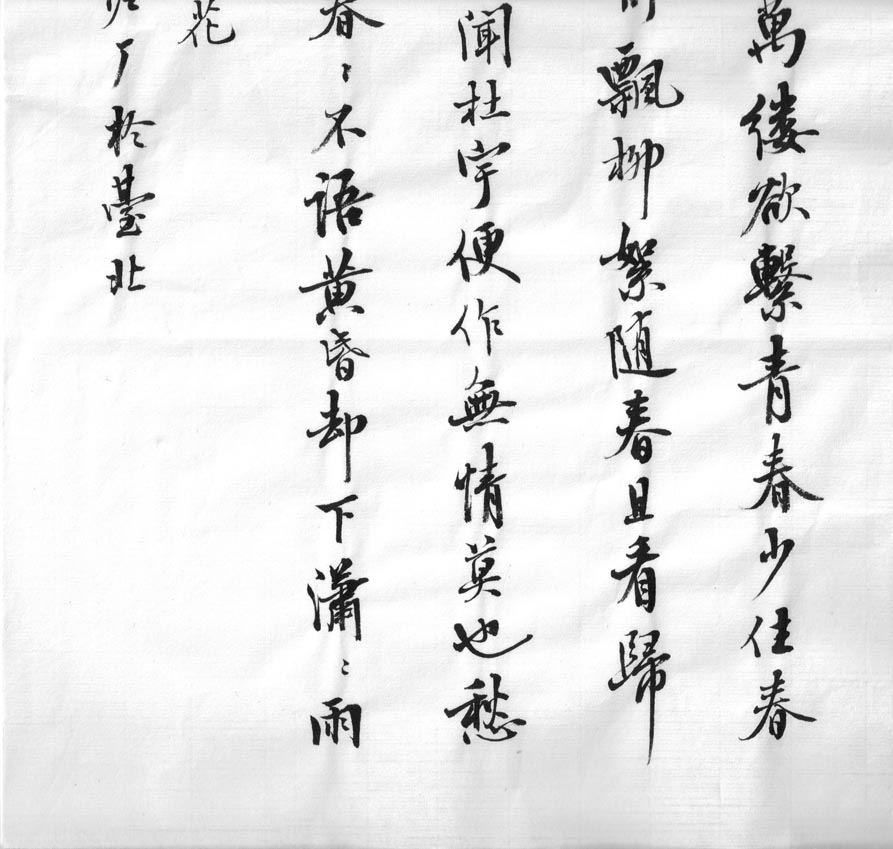 萬縷欲繫青春少住春
飄柳絮随春且看歸
聞杜宇便作無情莫也愁
春〻不語黄昏却下瀟〻雨
花
厂於臺北